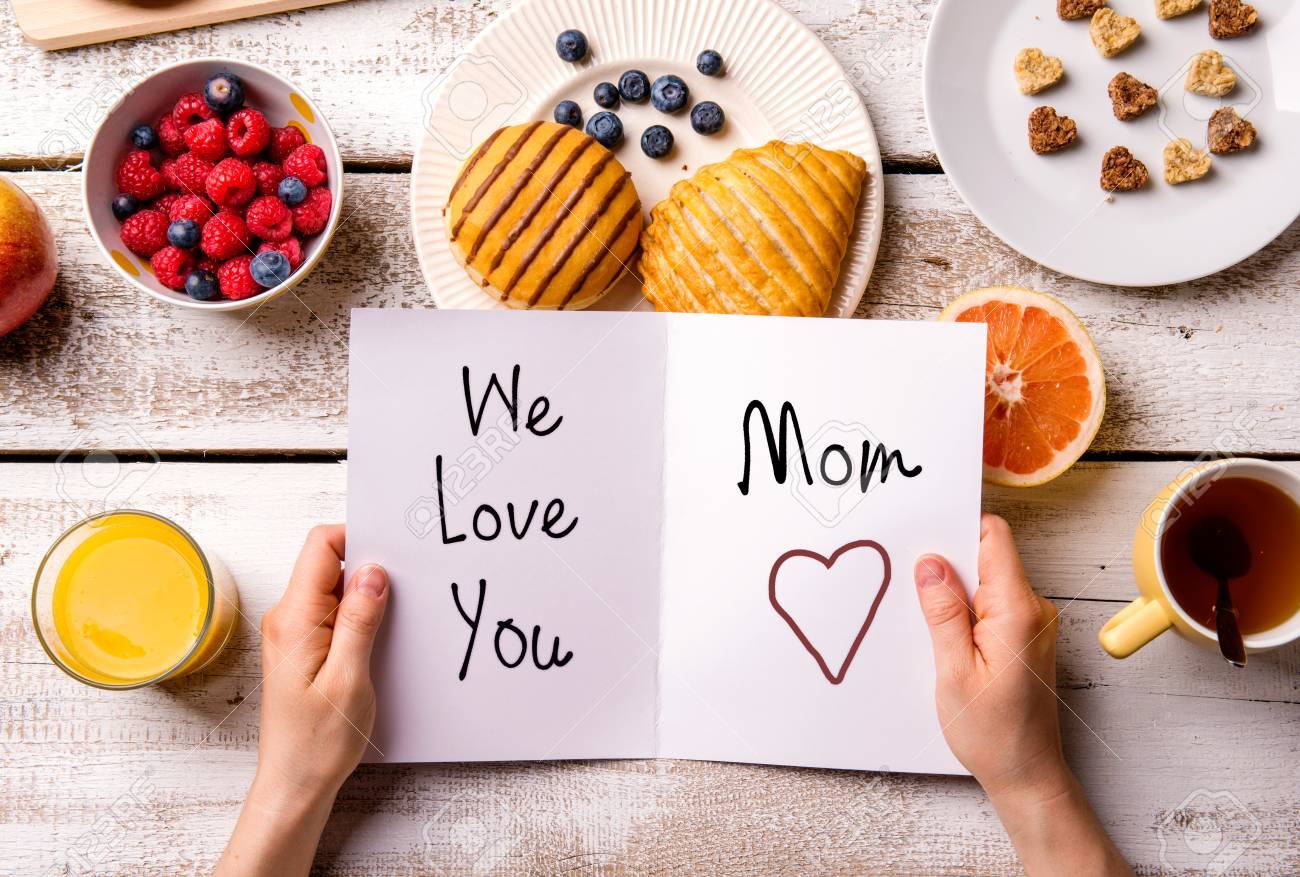 We
Love
You
Mom
123RF